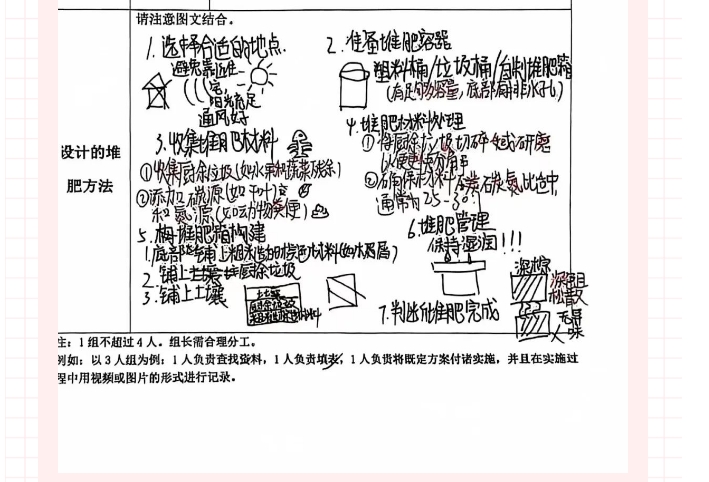 请注意图文结合。
1. 选择合适的地点.
避免靠近住宅,
阳光充足
通风好
2. 准备堆肥容器
塑料桶/垃圾桶/自制堆肥箱
(有足够容量,底部有排水孔)
3. 收集堆肥材料
①收集厨余垃圾(如水果和蔬菜残余)
②添加碳源(如干叶)
和氮源(如动物粪便)
4. 堆肥材料处理
①将厨余垃圾切碎或研磨
以便更
②确保材料碳氮比适中,
通常为25-30:1
设计的堆
肥方法
5. 构堆肥箱构建
1. 底部铺上粗木
2. 铺上土壤厨余垃圾
3. 铺上土壤
土壤
厨余垃圾
6. 堆肥管理
保持湿润!!!
7. 判断堆肥完成
深棕
松散
无异
味
注:1 组不超过 4 人。组长需合理分工。
例如:以 3 人组为例:1 人负责查找资料,1 人负责填表,1 人负责将既定方案付诸实施,并且在实施过
程中用视频或图片的形式进行记录。